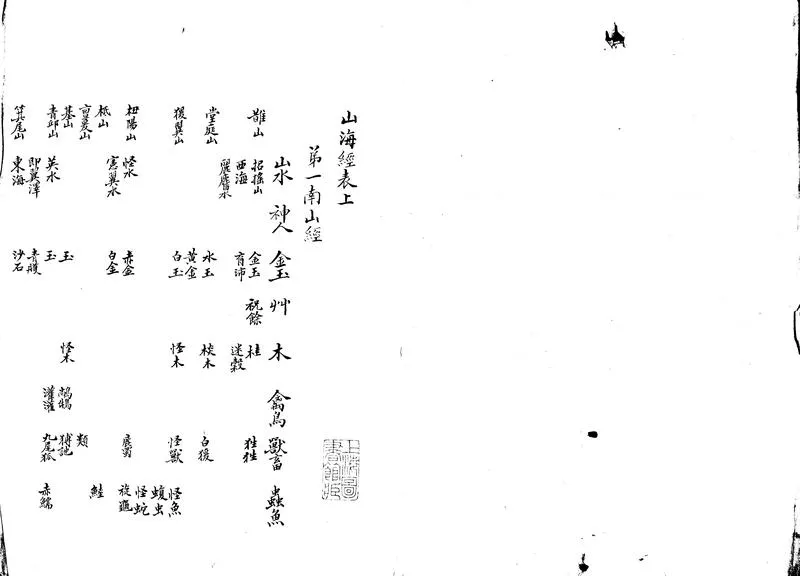 山海經表上
第一南山經
山水 神人 金玉 艸 木 禽鳥 獸畜 蟲魚
䧿山 招搖山 金玉 祝餘 桂 狌狌
西海 育沛 迷穀
麗䴢水
堂庭山 水玉 棪木 白猨
黃金
猨翼山 白玉 怪木 怪獸 怪魚
蝮虫
怪蛇
杻陽山 怪水 赤金 鹿蜀 旋龜
憲翼水 白金
柢山 鯥
亶爰山 類
基山 玉 怪木 𪁺䳜 猼訑
青邱山 英水 玉 灌灌 九尾狐 赤鱬
即翼澤 青雘
箕尾山 東海 沙石
上海圖書館藏